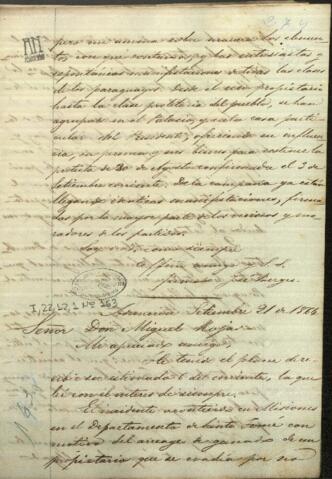 274
pero me anima sobre manera los elemen
tos con que contamos, y las entusiastas y
espontáneas manifestaciones de todas las clases
de los paraguayos. Desde el rico propietario
hasta la clase proletaria del pueblo, se han
agrupado en el Palacio, y en la casa parti
cular del Presidente, ofreciendo su influen
cia, su persona y sus bienes para sostener la
protesta de 30 de Agosto confirmada el 3 de
Setiembre corriente. De la campaña ya están
llegando idénticas manifestaciones, firma
das por la mayor parte de los vecinos y mo
radores de los partidos.
Soy como siempre
amigo y S. S.
firmado José Berges
I,22,12,1 Nº 363
Asuncion Setiembre 21 de 1864
Señor Don Miguel Rojas
Mi apreciado amigo
He tenido el placer de re
cibir su estimada del corriente, la que
leí con el interes de siempre.
El incidente acontecido en Misiones
en el Departamento de Santo Tomé con
motivo del arreage de ganados de un
propietario que se evadía por no